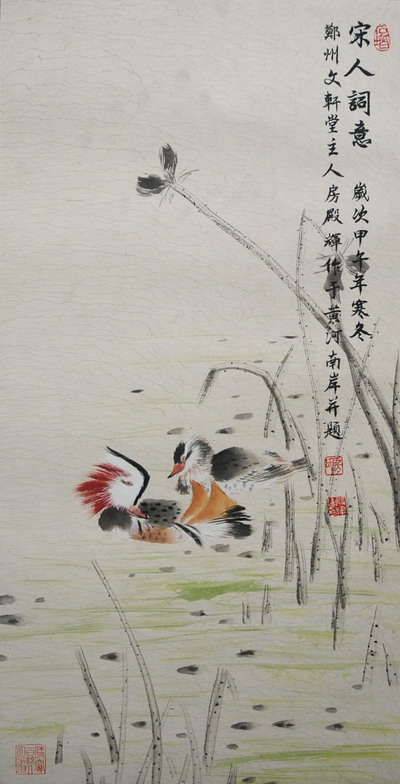 宋人詞意 歲次甲午年寒冬
鄭州文軒堂主人房殿輝作于黃河南岸并題